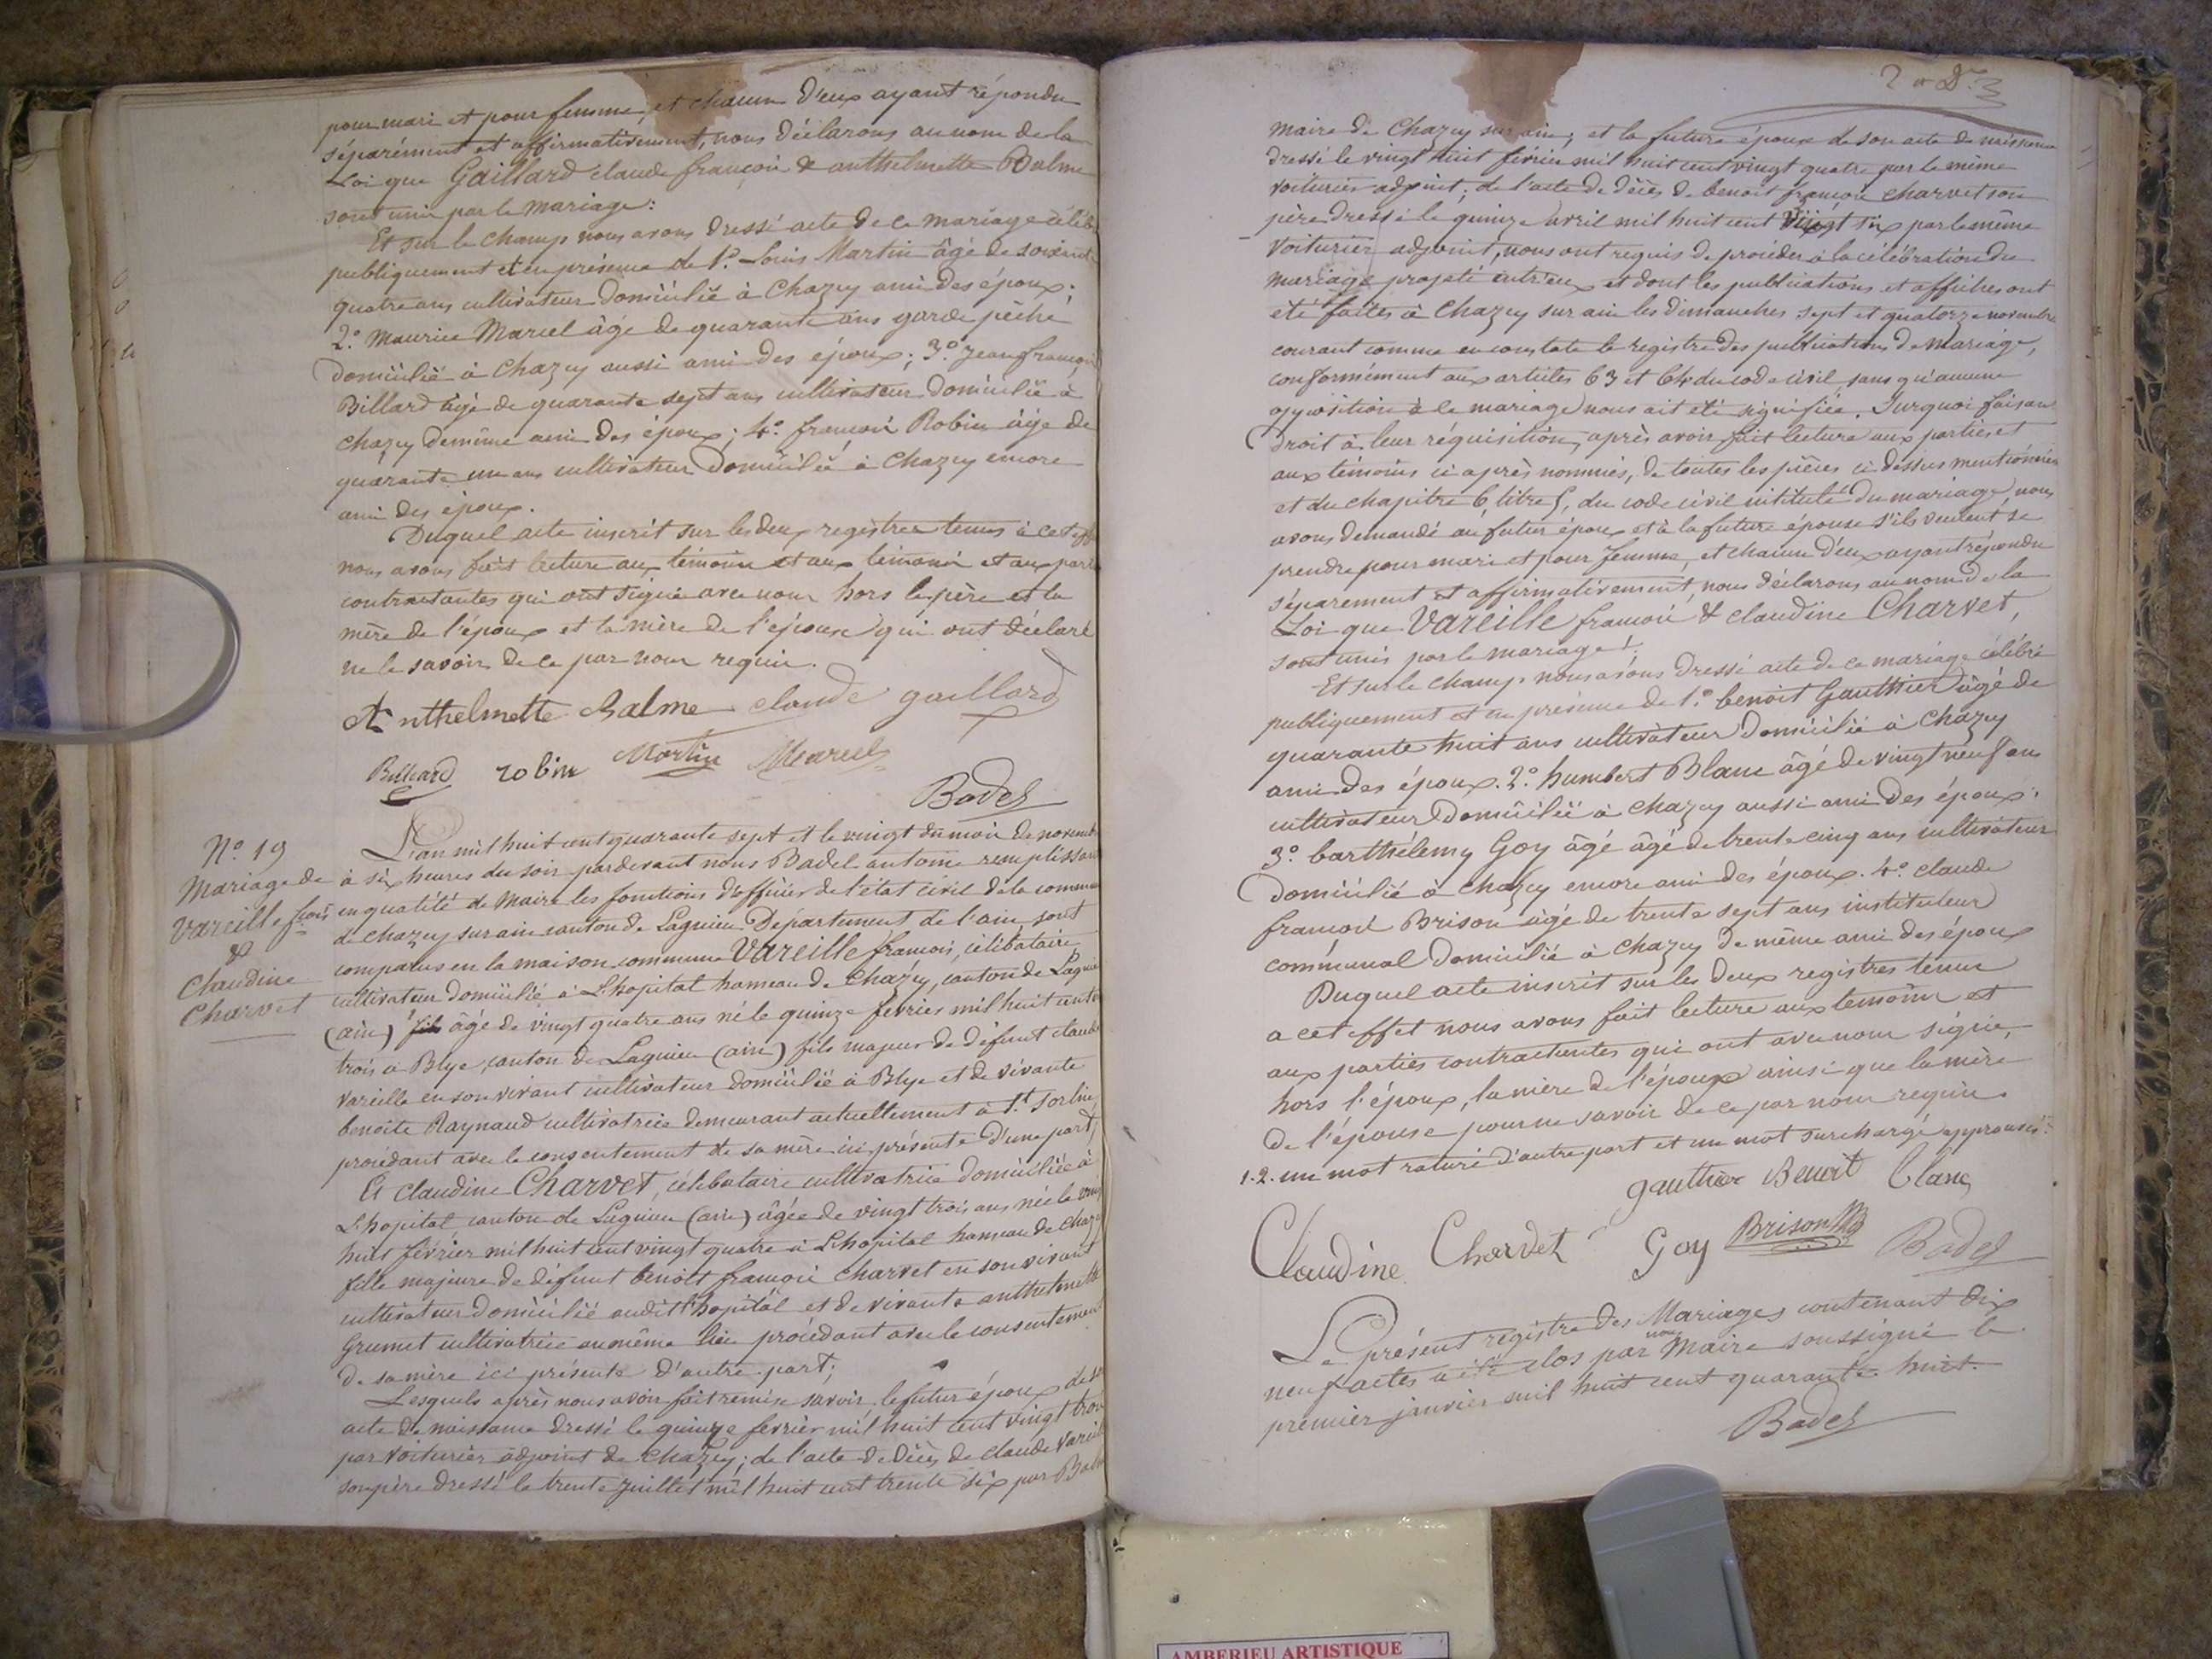 pour mari et pour femme, et chacun d'eux ayant répondu
séparément et affirmativement, nous déclarons au nom de la
Loi que Gaillard claude françois & anthelmette Balme
sont unis par le mariage:
Et sur le champ nous avons dressé acte de ce mariage célébré
publiquement et en présence de 1.º Louis Martin âgé de soixante
quatre ans cultivateur domicilié à Chazey ami des époux.
2.º Maurice Marcel âgé de quarante ans garde pêche
domicilié à Chazey aussi ami des époux; 3.º Jean françois
Billard âgé de quarante sept ans cultivateur domicilié à
chazey de même ami des époux; 4.º françois Robin âgé de
quarante un ans cultivateur domicilié à Chazey encore
ami des époux.
Duquel acte inscrit sur les deux registres tenus à cet eff
nous avons fait lecture aux témoins et aux témoins et aux part
contractantes qui ont signé avec nous hors le père et la
mère de l'époux et la mère de l'épouse qui ont déclaré
ne le savoir de ce par nous requis.
Anthelmette Balme claude gaillard
Billard robin Martin Marcel
Badel
Nº 19
Mariage de
Vareille f.çois
&
Claudine
Charvet
L'an mil huit cent quarante sept et le vingt du mois de novemb
à six heures du soir pardevant nous Badel antoine remplissant
en qualité de Maire les fonctions d'officier de l'état civil de la commune
de chazey sur ain canton de Lagnieu Département de l'ain sont
comparus en la maison commune Vareille françois, célibataire
cultivateur domicilié à L'hopital hameau de Chazey, canton de Lagnieu
(ain) fils âgé de vingt quatre ans né le quinze février mil huit cent v
trois à Blye, canton de Lagnieu (ain) fils majeur de défunt claude
vareille en son vivant cultivateur domicilié à Blye et de vivante
benoite Raynaud cultivatrice demeurant actuellement à S.t Sorlin,
procédant avec le consentement de sa mère ici présente d'une part,
Et claudine Charvet, célibataire cultivatrice domiciliée à
L'hopital canton de Lagnieu (ain) âgée de vingt trois ans née le vingt
huit février mil huit cent vingt quatre à L'hopital hameau de Chazey
fille majeure de défunt benoit françois Charvet en son vivant
cultivateur domicilié audit l'hopital et de vivante anthelmette
Grumet cultivatrice au même lieu procédant avec le consentement
de sa mère ici présente d'autre part;
Lesquels après nous avoir fait remise savoir, le futur époux de s
acte de naissance dressé le quinze février mil huit cent vingt trois
par Voiturier adjoint de Chazey; de l'acte de décès de claude Vareil
son père dressé le trente juillet mil huit cent trente six par
maire de Chazey sur ain; et la future épouse de son acte de naissance
dressé le vingt huit février mil huit cent vingt quatre par le même
voiturier adjoint; de l'acte de décès de benoit françois charvet son
père dressé le quinze avril mil huit cent vingt six par le même
Voiturier adjoint, nous ont requis de procéder à la célébration du
mariage projeté entr'eux et dont les publications et affiches ont
été faites à Chazey sur ain les dimanches sept et quatorze novembre
courant comme en constate le registre des publications de mariage,
conformément aux articles 63 et 64 du code civil sans qu'aucune
opposition à ce mariage nous ait été signifiée. Surquoi faisan
droit à leur réquisition, après avoir fait lecture aux parties et
aux témoins ci après nommés, de toutes les pièces ci dessus mentionnées
et du chapitre 6, titre 5, du code civil intitulé du mariage, nous
avons demandé au futur époux et à la future épouse s'ils veulent se
prendre pour mari et pour femme, et chacun d'eux ayant répondu
séparement et affirmativement, nous déclarons au nom de la
Loi que Vareille françois & claudine Charvet,
sont unis par le mariage!
Et sur le champ nous avons dressé acte de ce mariage célébré
publiquement et en présence de 1.º benoit Gauthier âgé de
quarante huit ans cultivateur domicilié à Chazey
ami des époux. 2.º humbert Blanc âgé de vingt neuf ans
cultivateur domicilié à Chazey aussi ami des époux.
3.º barthélemy Goy âgé âgé de trente cinq ans cultivateur
domicilié à Chazey encore ami des époux. 4.º claude
françois Brison âgé de trente sept ans instituteur
communal domicilié à Chazey de même ami des époux
Duquel acte inscrit sur les deux registres tenus
a cet effet nous avons fait lecture aux temoins et
aux parties contractantes qui ont avec nous signé,
hors l'époux, la mère de l'époux ainsi que la mère
de l'épouse pour ne savoir de ce par nous requis.
1.2. un mot raturé d'autre part et un mot surchargé approuvés
gauthier Benoit Blanc
Claudine Charvet Goy Brison Badel
Le présent registre des Mariages contenant dix
neuf actes a été clos par nous Maire soussigné le
premier janvier mil huit cent quarante huit.
Badel
AMBERIEU ARTISTIQUE